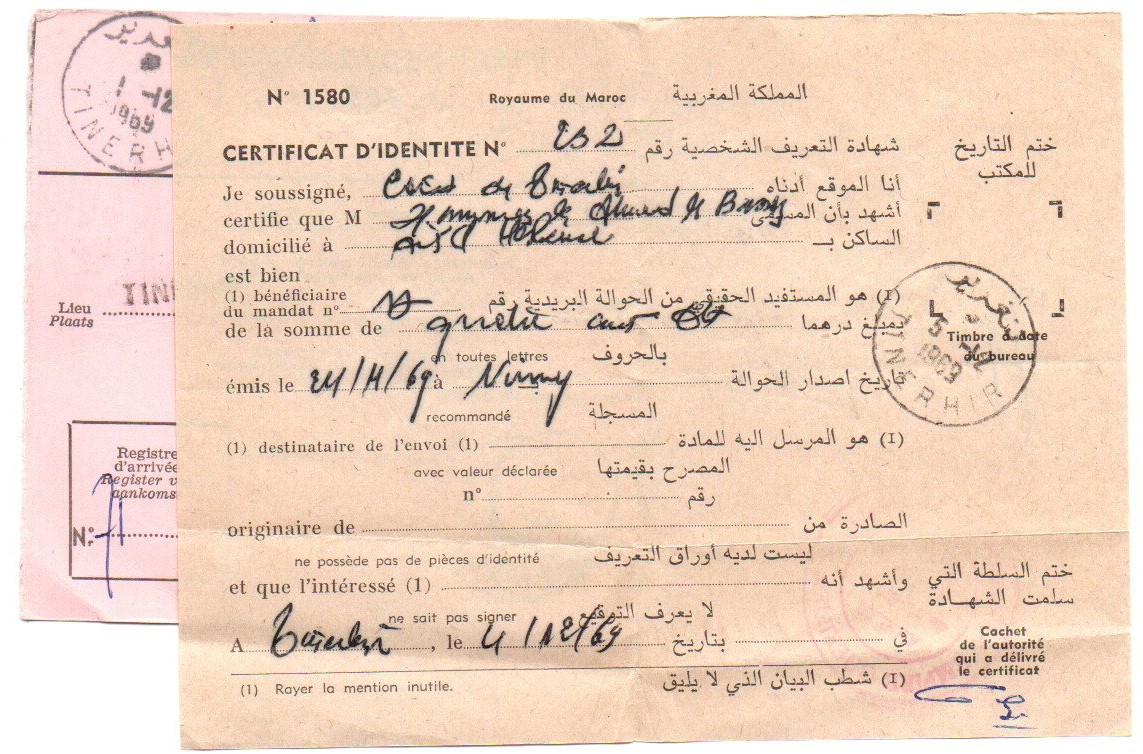 تنغدير
1 -12
1969
TINERH
Lieu
Plaats
TIN
Registre
d'arrivée
Register v
aankoms
N°
N° 1580 Royaume du Maroc المملكة المغربية
CERTIFICAT D'IDENTITE N° شهادة التعريف الشخصية رقم
ختم التاريخ
للمكتب
Je soussigné, أنا الموقع أدناه
certifie que M أشهد بأن المسمى
domicilié à الساكن بـ
est bien
(1) bénéficiaire
du mandat n° (I) هو المستفيد الحقيقي من الحوالة البريدية رقم
de la somme de بمبلغ درهما
en toutes lettres بالحروف
Timbre à date
du bureau
تنغدير
5 -12
1969
TINERHIR
émis le à تاريخ اصدار الحوالة
recommandé المسجلة
(1) destinataire de l'envoi (1) (I) هو المرسل اليه للمادة
avec valeur déclarée المصرح بقيمتها
n° رقم
originaire de الصادرة من
ne possède pas de pièces d'identité ليست لديه أوراق التعريف
et que l'intéressé (1) وأشهد أنه
ختم السلطة التي
سلمت الشهادة
ne sait pas signer لا يعرف التوقيع
A , le بتاريخ في
Cachet
de l'autorité
qui a délivré
le certificat
(1) Rayer la mention inutile. (I) شطب البيان الذي لا يليق